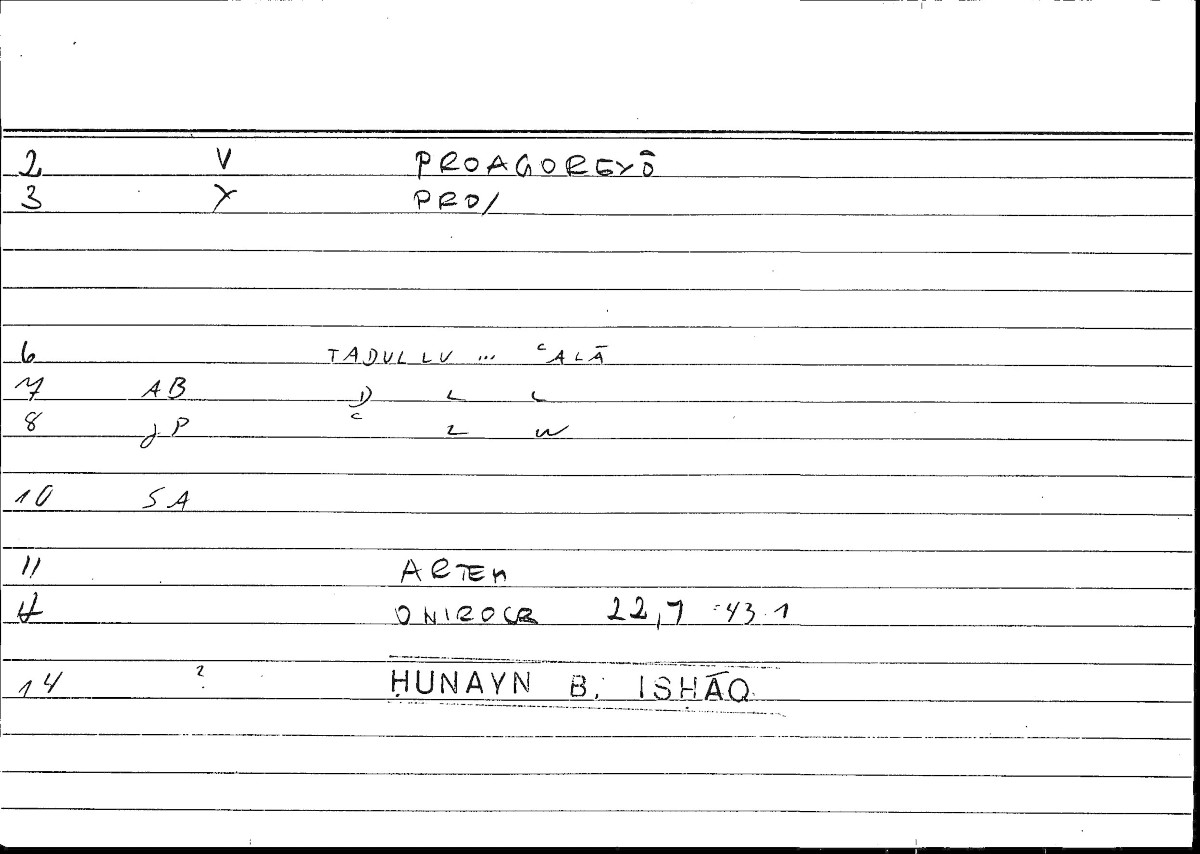 2 V PROAGOREYŌ
3 Y PRO/
6 TADULLU ... ᶜALĀ
7 AB D L L
8 JP ᶜ 2 W
10 SA
11 ARTEM
ONIROCR 22,7 = 43.1
14 ? ḤUNAYN B. ISḤĀQ